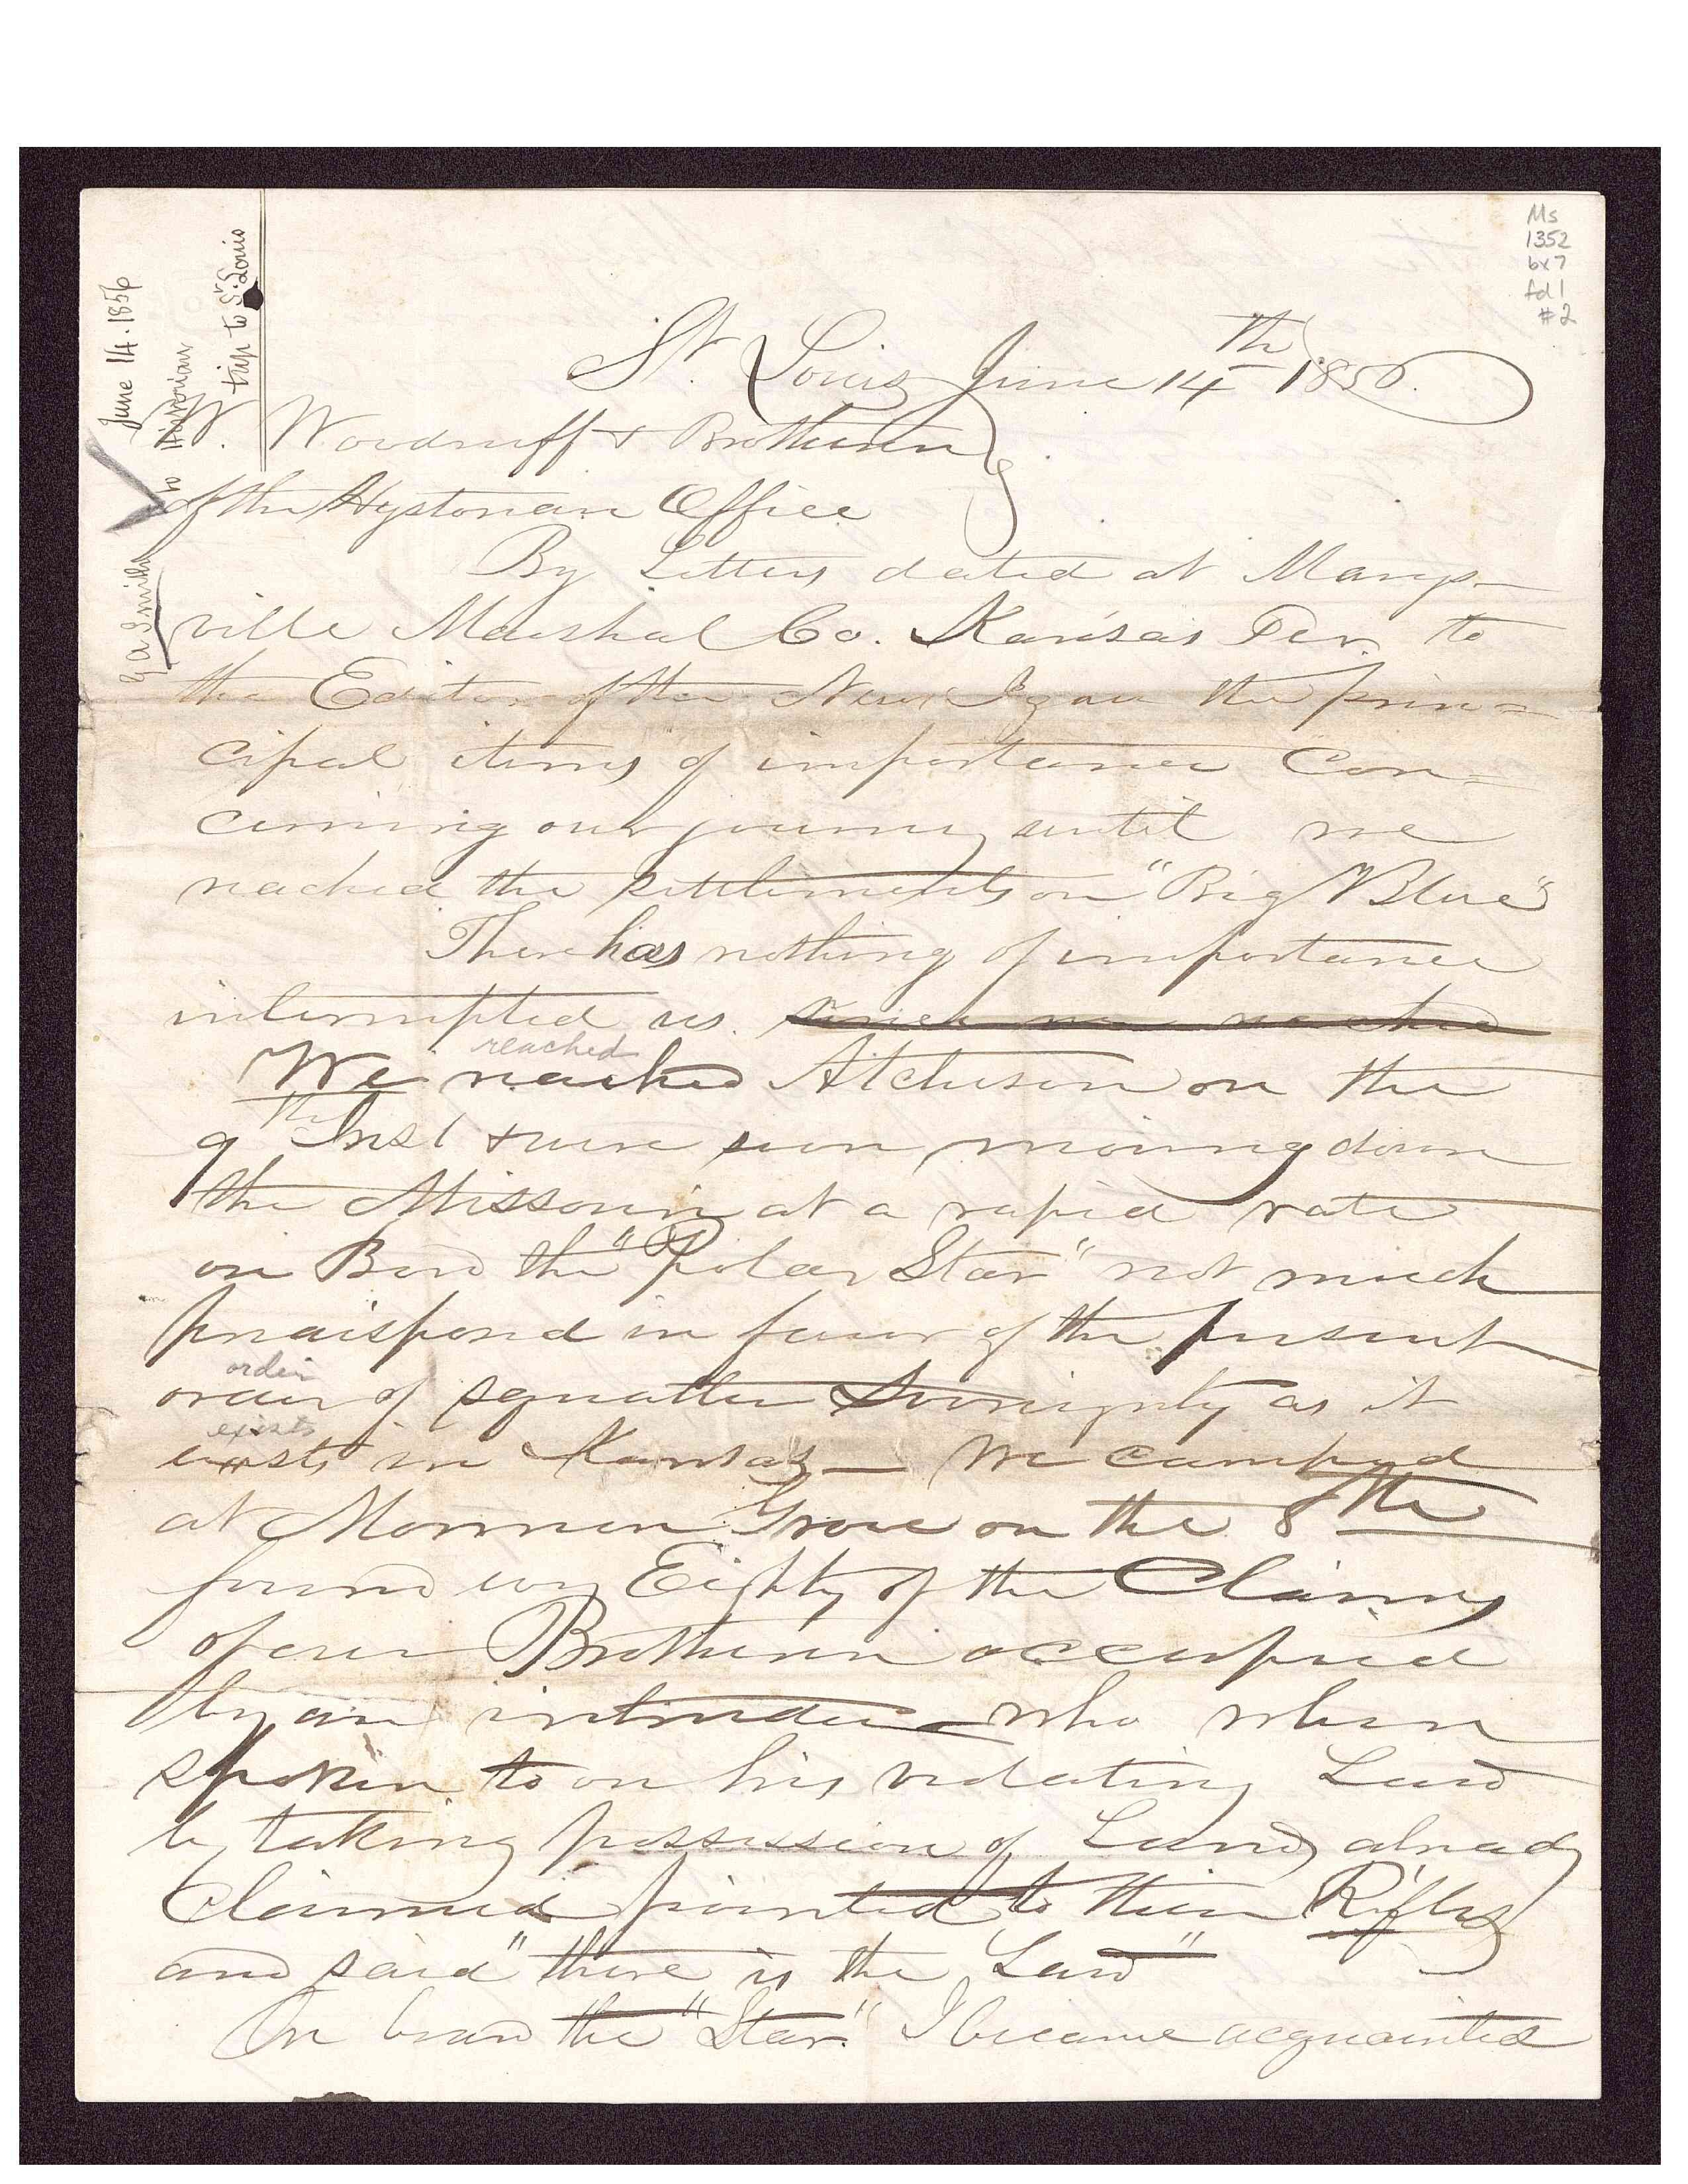 Ms
1352
bx 7
fd 1
#2
June 14. 1856
to Historian
trip to St. Louis
G A Smith
St. Louis June 14th 1856.
W. Woodruff & Brotheren
of the Hystorian Office
By Letters dated at Marys-
ville Marshal Co. Kansas Ter. to
the Editor of the News I gave the prin=
cipal items of importance Con=
cerning our journey until we
reached the settlements on "Big Blue"
There has nothing of importance
interrupted us. since we reached
reached
We reached Atchison on the
9th Inst & were soon moving down
the Missouri at a rapid rate
on Bord the "Polar Star" not much
in favor of the present
order
order of squatter Sovreignty as it
exists
exists in Kansas — We camped
at Mormon Grove on the 8th
found Eighty of the Claims
of our Brotheren occupied
by an intruder who when
spoken to on his violating Law
by taking possession of Land already
Claimed pointed to their Rifles
and said "there is the Law"
On board the "Star." I became acquainted